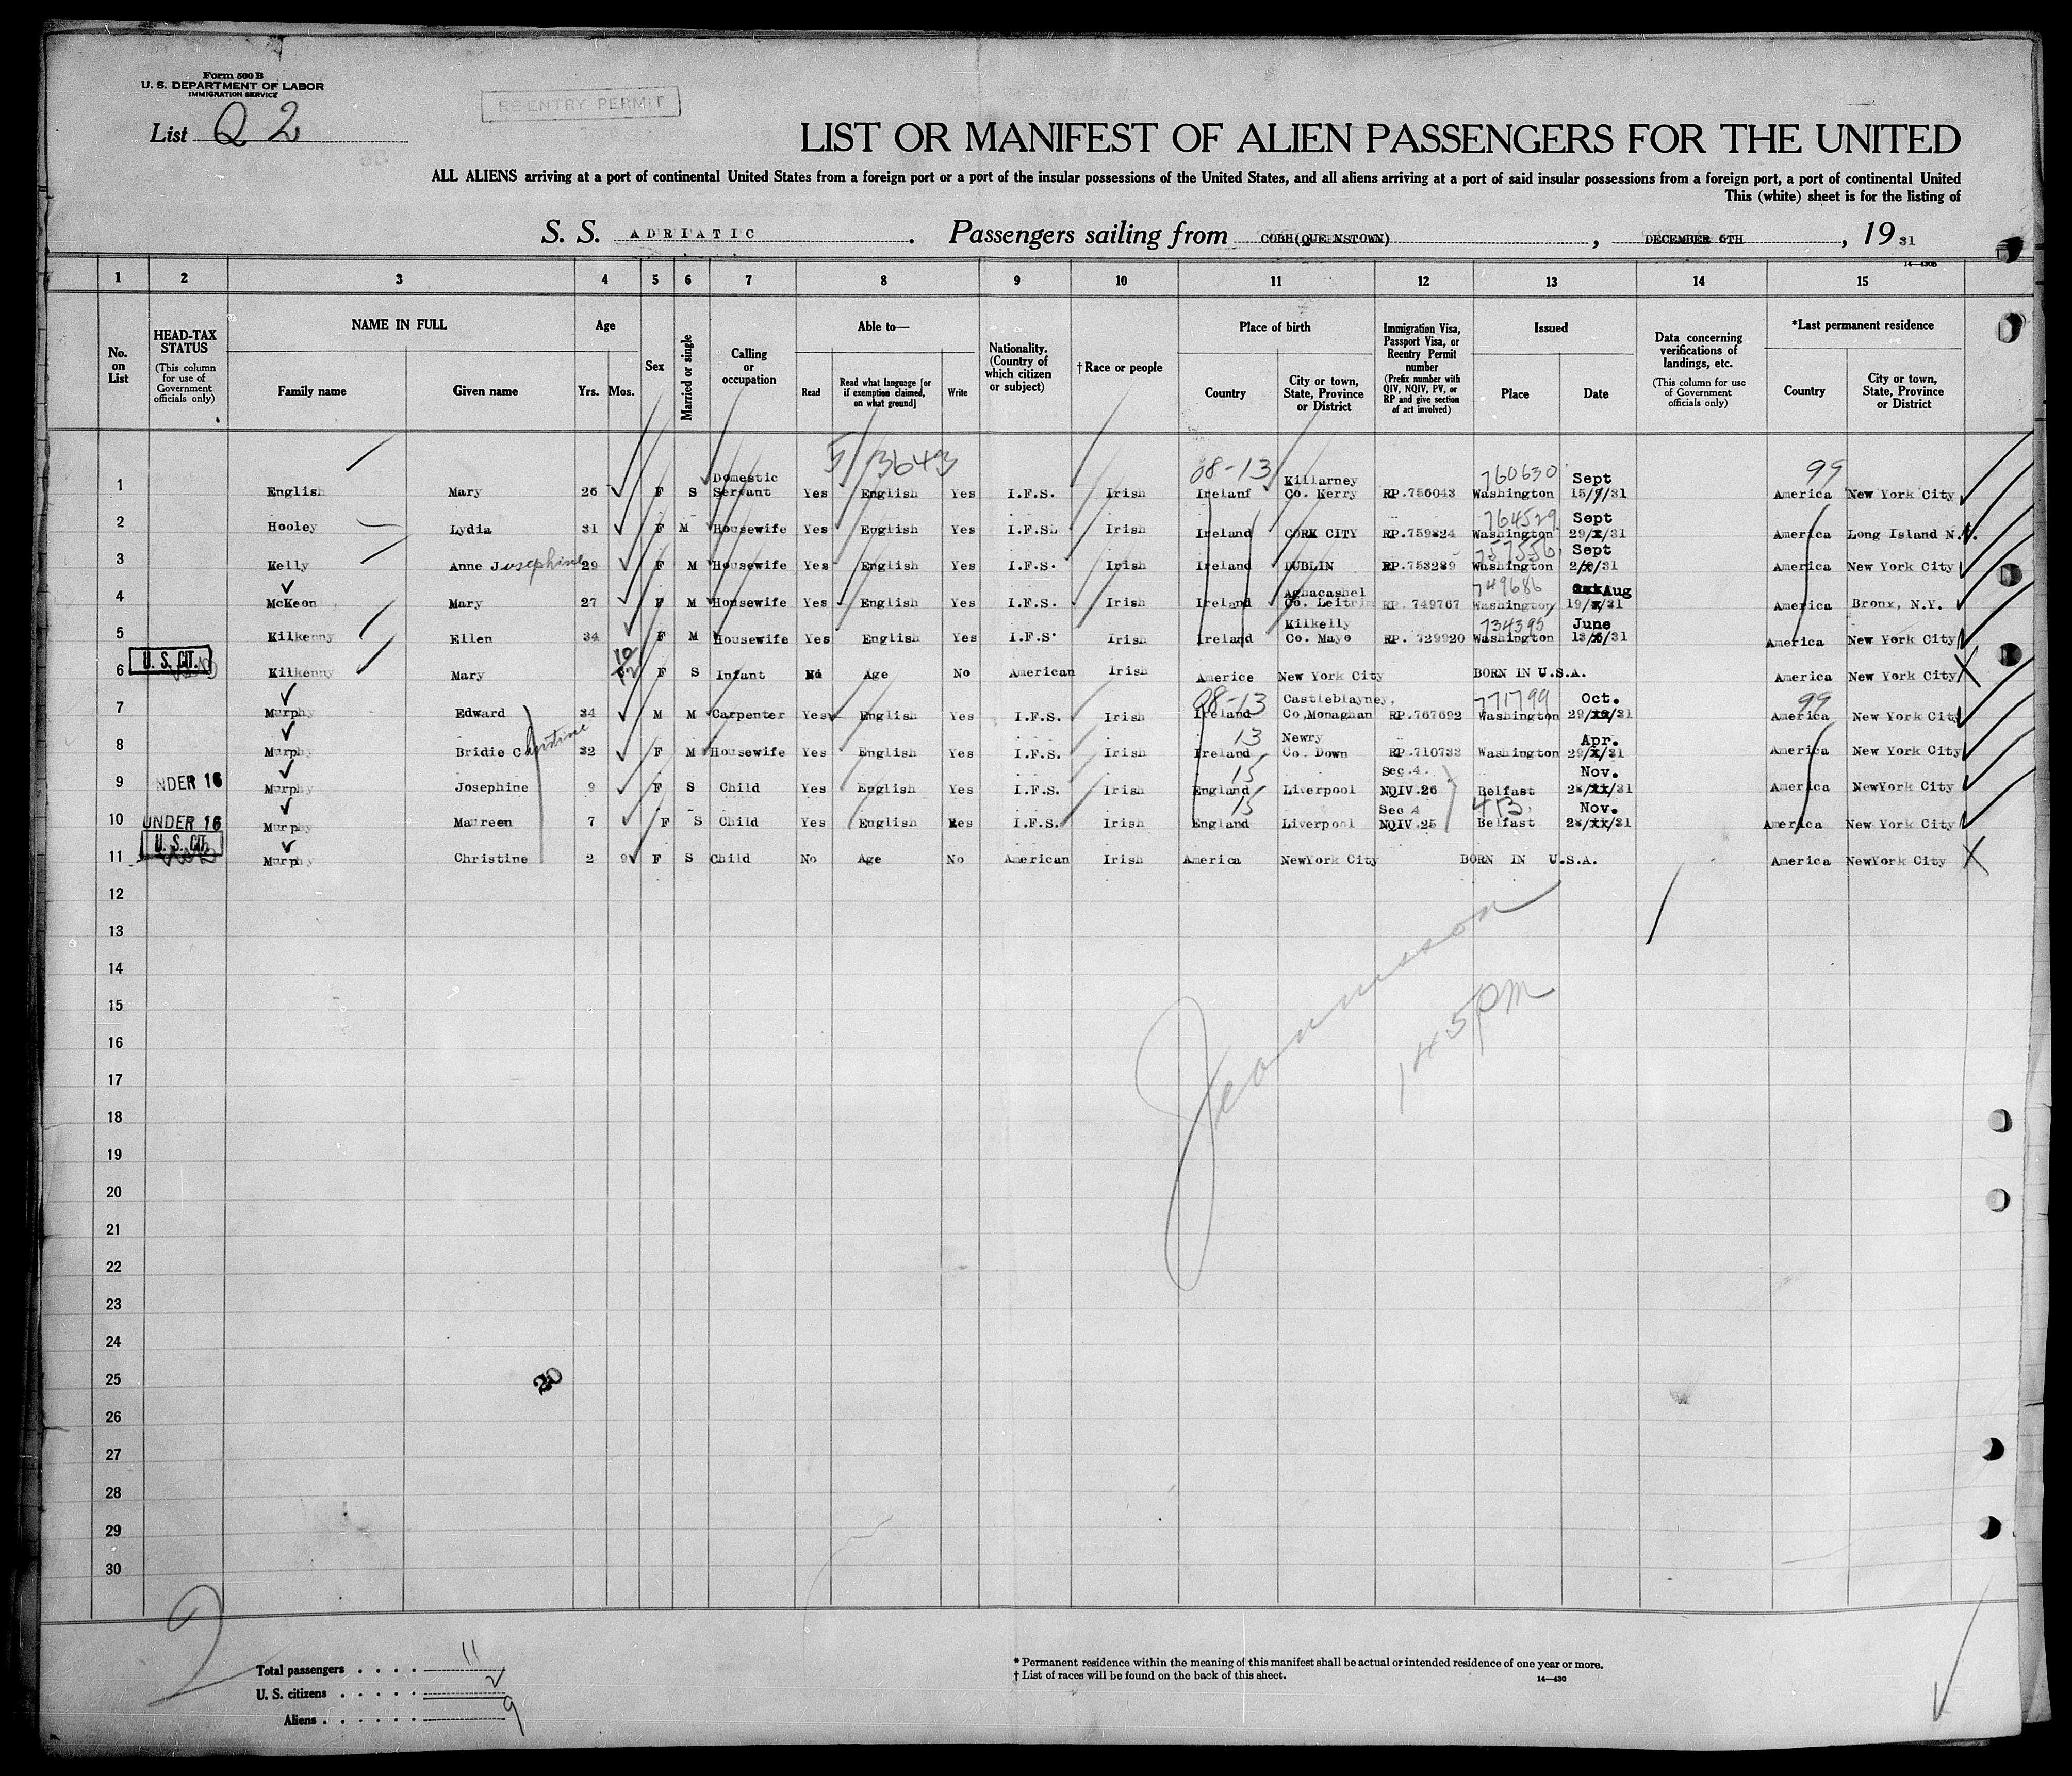 Form 500 B
U. S. DEPARTMENT OF LABOR
IMMIGRATION SERVICE
RE-ENTRY PERMIT
List Q 2
LIST OR MANIFEST OF ALIEN PASSENGERS FOR THE UNITED
ALL ALIENS arriving at a port of continental United States from a foreign port or a port of the insular possessions of the United States, and all aliens arriving at a port of said insular possessions from a foreign port, a port of continental United
This (white) sheet is for the listing of
S. S. ADRIATIC . Passengers sailing from COBH(QUEENSTOWN) , DECEMBER 6TH , 19 31
14—430B
1 2 3 4 5 6 7 8 9 10 11 12 13 14 15
No. on List
HEAD-TAX STATUS
(This column for use of Government officials only)
NAME IN FULL
Family name Given name
Age
Yrs. Mos.
Sex
Married or single
Calling or occupation
Able to—
Read
Read what language [or if exemption claimed, on what ground]
Write
Nationality. (Country of which citizen or subject)
† Race or people
Place of birth
Country
City or town, State, Province or District
Immigration Visa, Passport Visa, or Reentry Permit number
(Prefix number with QIV, NQIV, PV, or RP and give section of act involved)
Issued
Place Date
Data concerning verifications of landings, etc.
(This column for use of Government officials only)
*Last permanent residence
Country
City or town, State, Province or District
5/13643 08-13 99
1 English Mary 26 F S Domestic Servant Yes English Yes I.F.S. Irish Irelanf Killarney Co. Kerry RP.756043 760630 Washington Sept 15/9/31 America New York City
2 Hooley Lydia 31 F M Housewife Yes English Yes I.F.S. Irish Ireland CORK CITY RP.759824 764529 Washington Sept 29/x/31 America Long Island N.Y.
3 Kelly Anne Josephine 29 F M Housewife Yes English Yes I.F.S. Irish Ireland DUBLIN RP.753289 757556 Washington Sept 2/x/31 America New York City
4 McKeon Mary 27 F M Housewife Yes English Yes I.F.S. Irish Ireland Aghacashel Co. Leitrim RP. 749767 749686 Washington Aug 19/x/31 America Bronx, N.Y.
5 Kilkenny Ellen 34 F M Housewife Yes English Yes I.F.S. Irish Ireland Kilkelly Co. Mayo RP. 729920 734395 Washington June 13/6/31 America New York City
6 U. S. CIT. Kilkenny Mary 10 F S Infant No Age No American Irish Americe New York City BORN IN U.S.A. America New York City
08-13 99
7 Murphy Edward 34 M M Carpenter Yes English Yes I.F.S. Irish Ireland Castleblayney, Co.Monaghan RP.767692 771799 Washington Oct. 29/xx/31 America New York City
8 Murphy Bridie Christine 32 F M Housewife Yes English Yes I.F.S. Irish 13 Ireland Newry Co. Down RP.710733 Washington Apr. 29/x/31 America New York City
9 UNDER 16 Murphy Josephine 9 F S Child Yes English Yes I.F.S. Irish 15 England Liverpool Sec.4. NQIV.26 Belfast Nov. 28/xx/31 America NewYork City
10 UNDER 16 Murphy Maureen 7 F S Child Yes English Yes I.F.S. Irish 15 England Liverpool Sec 4 NQIV.25 413 Belfast Nov. 28/xx/31 America New York City
11 U. S. CIT. Murphy Christine 2 9 F S Child No Age No American Irish America NewYork City BORN IN U.S.A. America NewYork City
12
13
14
15
16
1 45 PM
17
18
19
20
21
22
23
24
25
20
26
27
28
29
30
2
Total passengers . . . . 11
U. S. citizens . . . . . 2
Aliens . . . . . . 9
* Permanent residence within the meaning of this manifest shall be actual or intended residence of one year or more.
† List of races will be found on the back of this sheet.
14—430